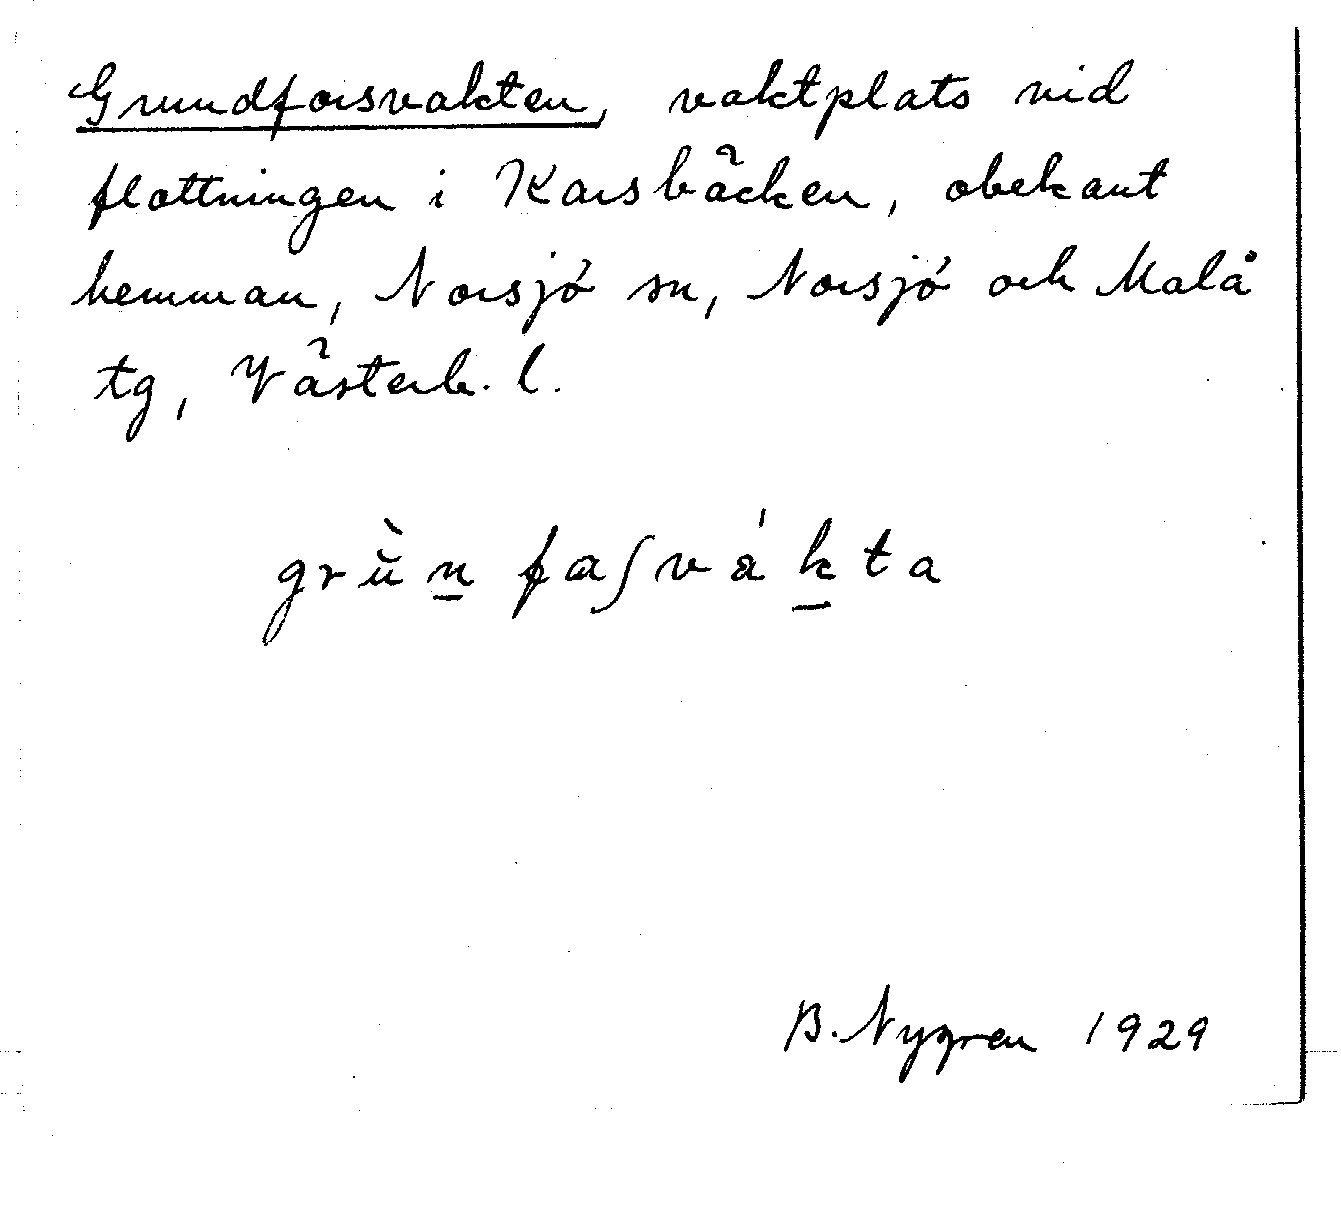 Grundforsvakten, vaktplats vid
flottningen i Karsbäcken, obekant
hemman, Norsjö sn, Norsjö och Malå
tg, Västerb. l.
grù̀n̲ faʃvák̲ta
B. Nygren 1929